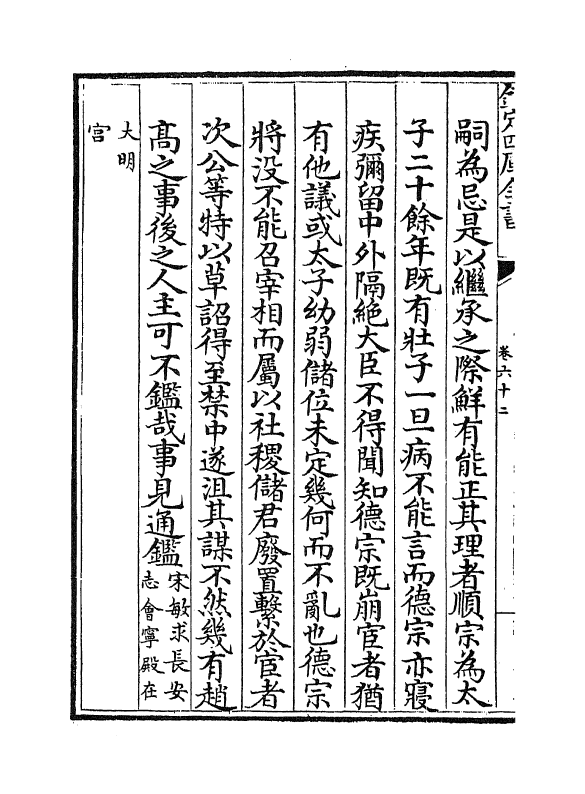 欽定四庫全書
卷六十二
嗣為忌是以繼承之際鮮有能正其理者順宗為太
子二十餘年既有壯子一旦病不能言而德宗亦寢
疾彌留中外隔絶大臣不得聞知德宗既崩宦者猶
有他議或太子幼弱儲位未定幾何而不亂也德宗
將没不能召宰相而屬以社稷儲君廢置繫於宦者
次公等特以草詔得至禁中遂沮其謀不然幾有趙
高之事後之人主可不鑑哉事見通鑑宋敏求長安
志會寧殿在
大明
宫